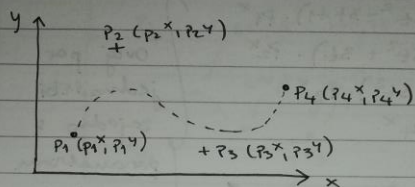 y
P₂ (P₂ˣ, P₂ʸ)
+
P₄ (P₄ˣ, P₄ʸ)
P₁ (P₁ˣ, P₁ʸ)
+ P₃ (P₃ˣ, P₃ʸ)
x